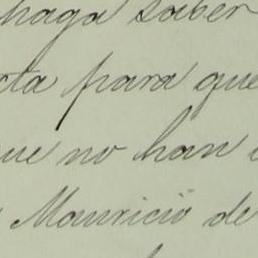 haga saber
para que
que no han
Mauricio de